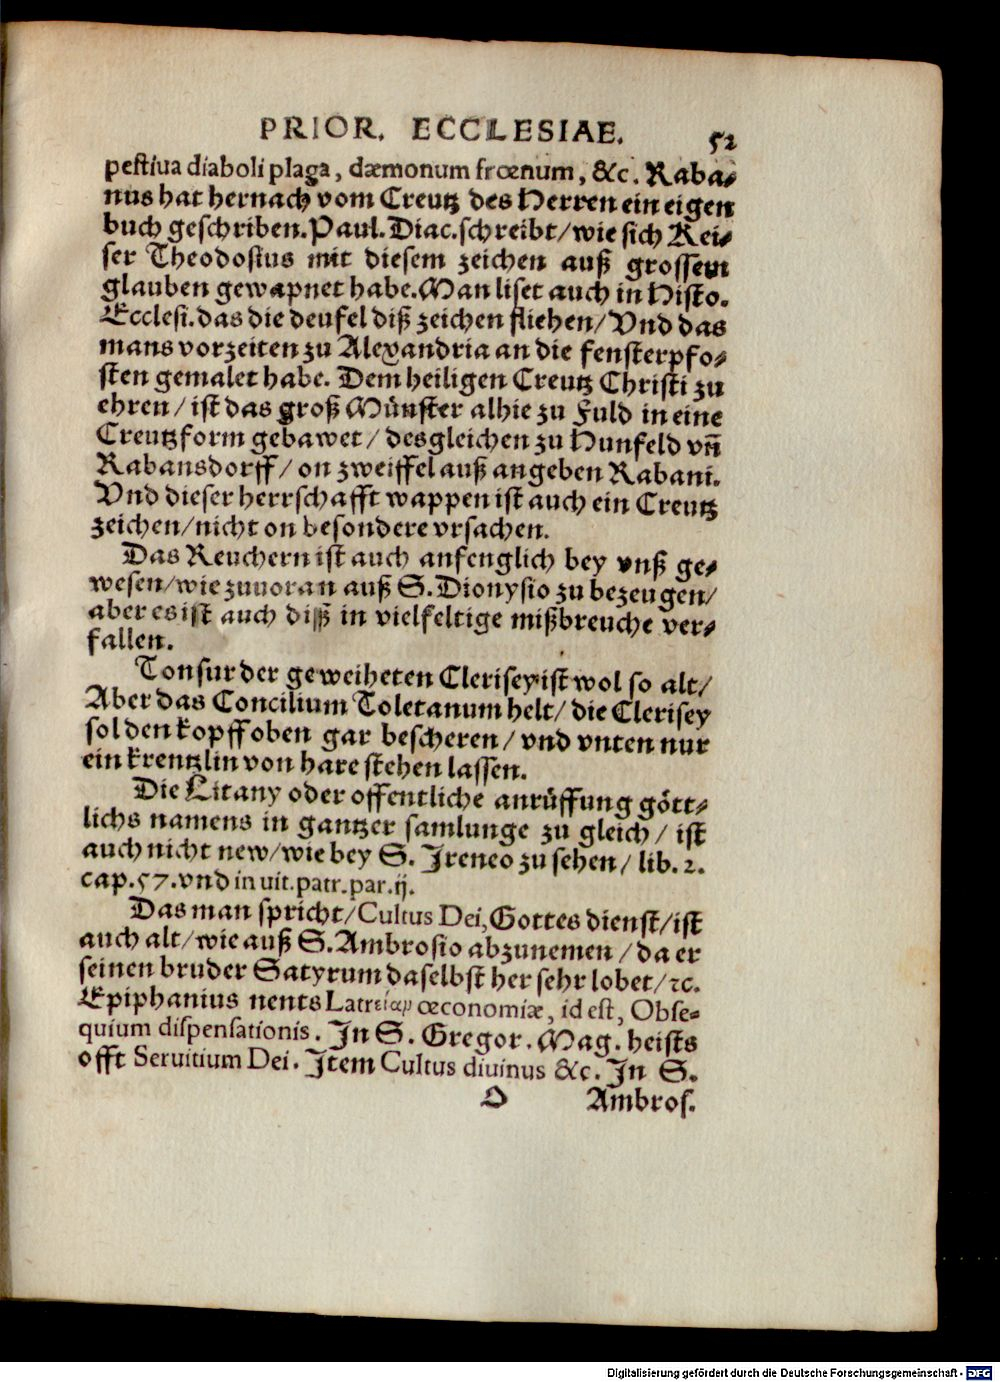 PRIOR. ECCLESIAE. 52
pestiua diaboli plaga, dæmonum frœnum, &c. Raba⸗
nus hat hernach vom Creutz des Herren ein eigen
buch geschriben. Paul. Diac. schreibt/wie sich Kei⸗
ser Theodosius mit diesem zeichen auß grossem
glauben gewapnet habe. Man liset auch in Histo.
Ecclesi. das die deufel diß zeichen fliehen/ Vnd das
mans vorzeiten zu Alexandria an die fensterpfo⸗
sten gemalet habe. Dem heiligen Creutz Christi zu
ehren/ ist das groß Münster alhie zu Fuld in eine
Creutzform gebawet/ desgleichen zu Hunfeld vñ
Rabansdorff/ on zweiffel auß angeben Rabani.
Vnd dieser herrschafft wappen ist auch ein Creutz
zeichen/nicht on besondere vrsachen.
Das Reuchern ist auch anfenglich bey vnß ge⸗
wesen/wie zuuoran auß S. Dionysio zu bezeugen/
aber es ist auch diß in vielfeltige mißbreuche ver⸗
fallen.
Tonsur der geweiheten Clerisey ist wol so alt/
Aber das Concilium Toletanum helt/ die Clerisey
sol den kopff oben gar bescheren/ vnd vnten nur
ein krentzlin von hare stehen lassen.
Die Litany oder offentliche anrüffung gött⸗
lichs namens in gantzer samlunge zu gleich/ ist
auch nicht new/wie bey S. Ireneo zu sehen/ lib. 2.
cap. 57. vnd in uit. patr. par. ij.
Das man spricht/ Cultus Dei, Gottes dienst/ist
auch alt/wie auß S. Ambrosio abzunemen/da er
seinen bruder Satyrum daselbst her sehr lobet/ ꝛc.
Epiphanius nents œconomiæ, id est, Obse⸗
quium dispensationis. In S. Gregor. Mag. heists
offt Seruitium Dei. Item Cultus diuinus &c. In S.
O Ambros.
Digitalisierung gefördert durch die Deutsche Forschungsgemeinschaft - DFG